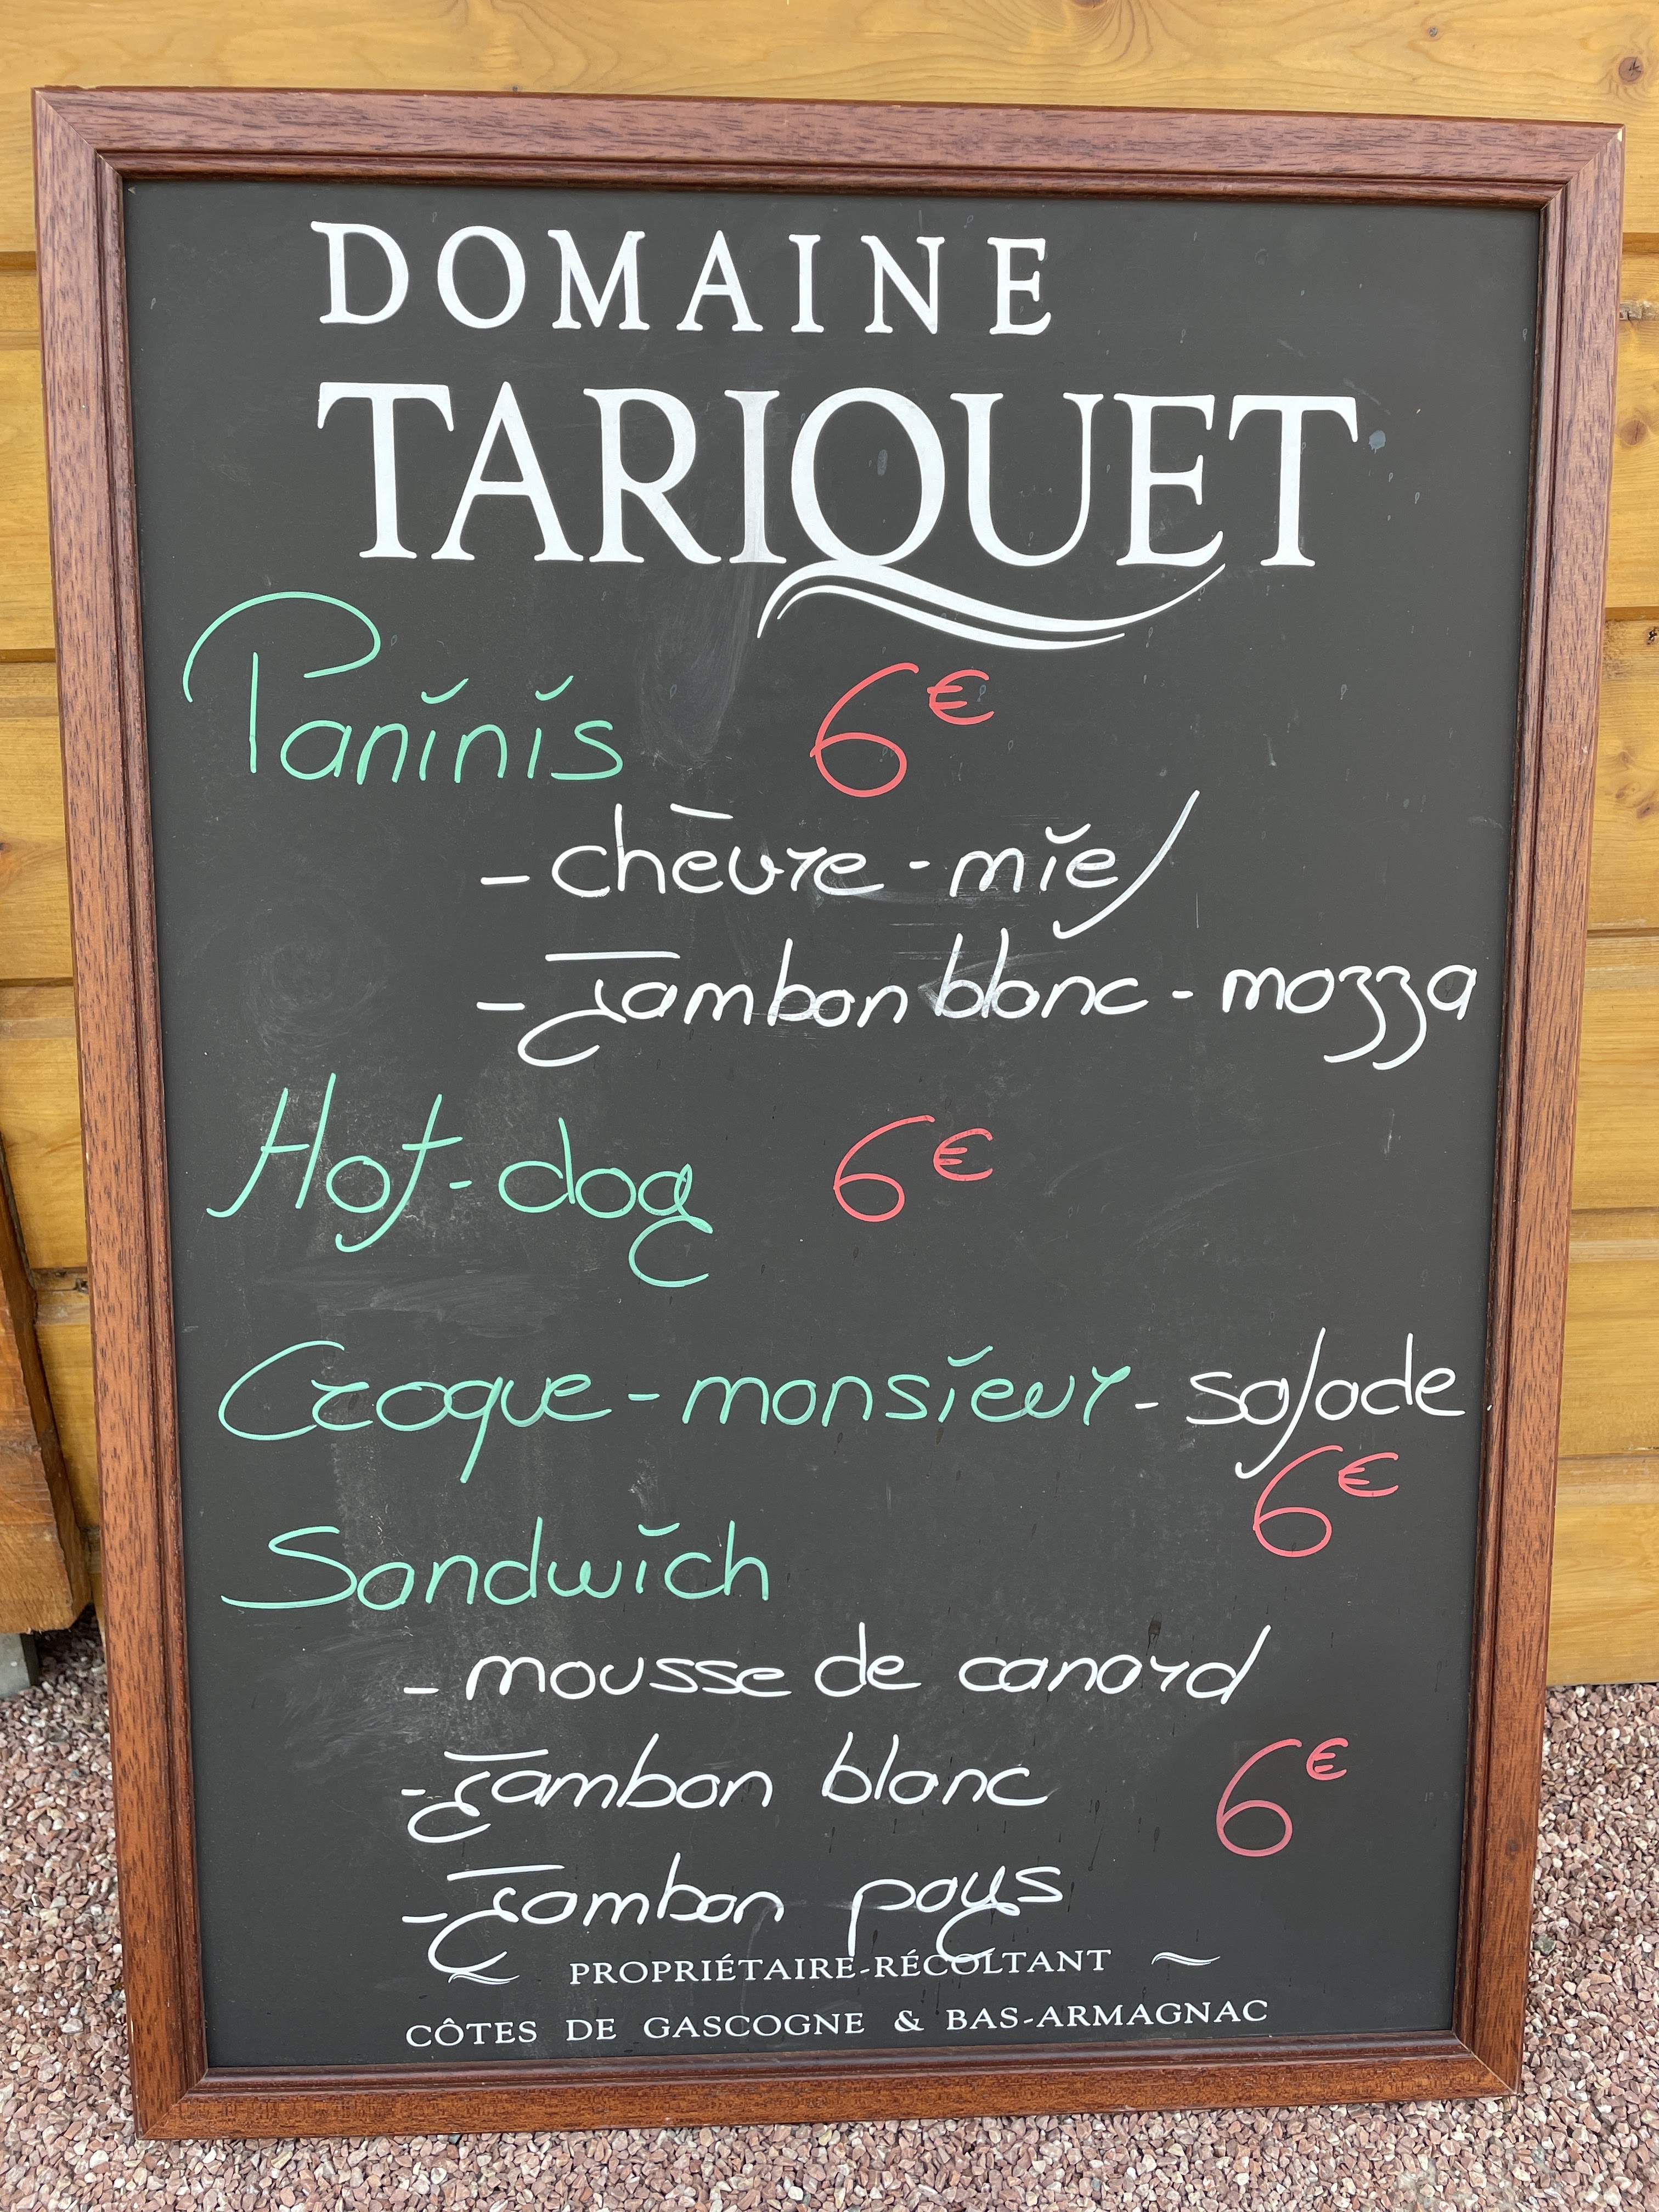 DOMAINE
TARIQUET
Paninis 6€
- chèvre - miel
- Jambon blanc - mozza
Hot-dog 6€
Croque-monsieur - salade
6€
Sandwich
- mousse de canard
- Jambon blanc 6€
- Jambon pays
PROPRIÉTAIRE-RÉCOLTANT
CÔTES DE GASCOGNE & BAS-ARMAGNAC